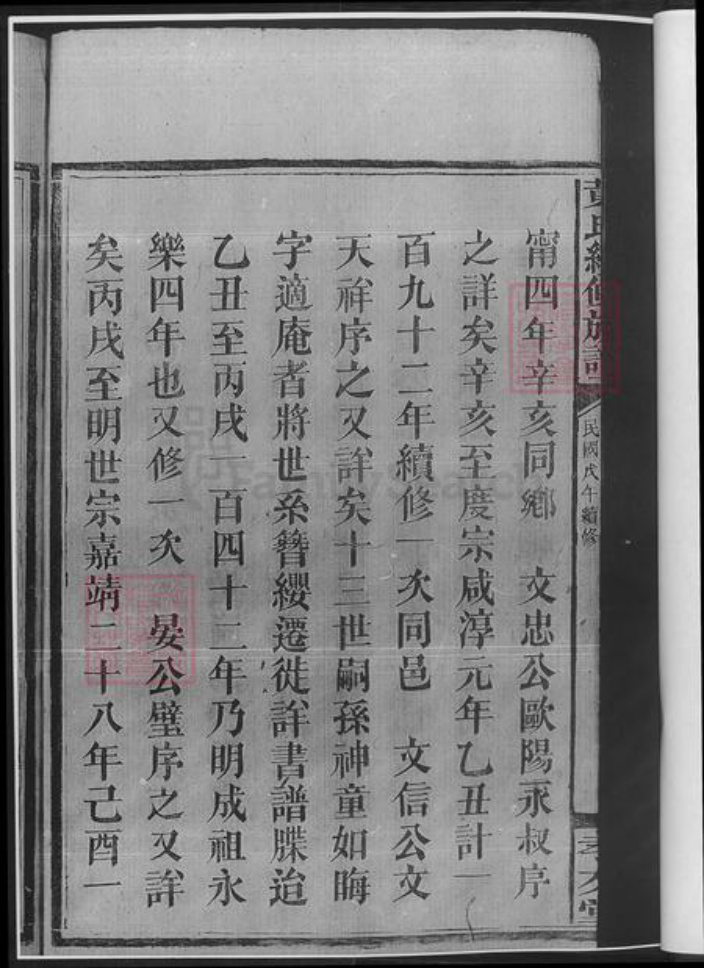 黃氏續修族譜
民國戊午續修
甯四年辛亥同鄉　文忠公歐陽永叔序
之詳矣辛亥至度宗咸淳元年乙丑計一
百九十二年續修一次同邑　文信公文
天祥序之又詳矣十三世嗣孫神童如晦
字適庵者將世系簪纓遷徙詳書譜牒迨
乙丑至丙戌一百四十二年乃明成祖永
樂四年也又修一次　晏公璧序之又詳
矣丙戌至明世宗嘉靖二十八年己酉一